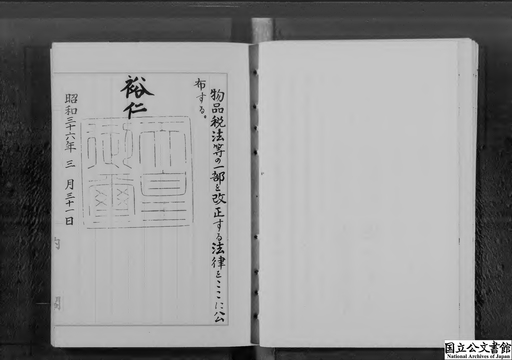 物品税法等の一部を改正する法律をここに公
布する。
裕仁
天皇
御璽
昭和三十六年三月三十一日
国立公文書館
National Archives of Japan